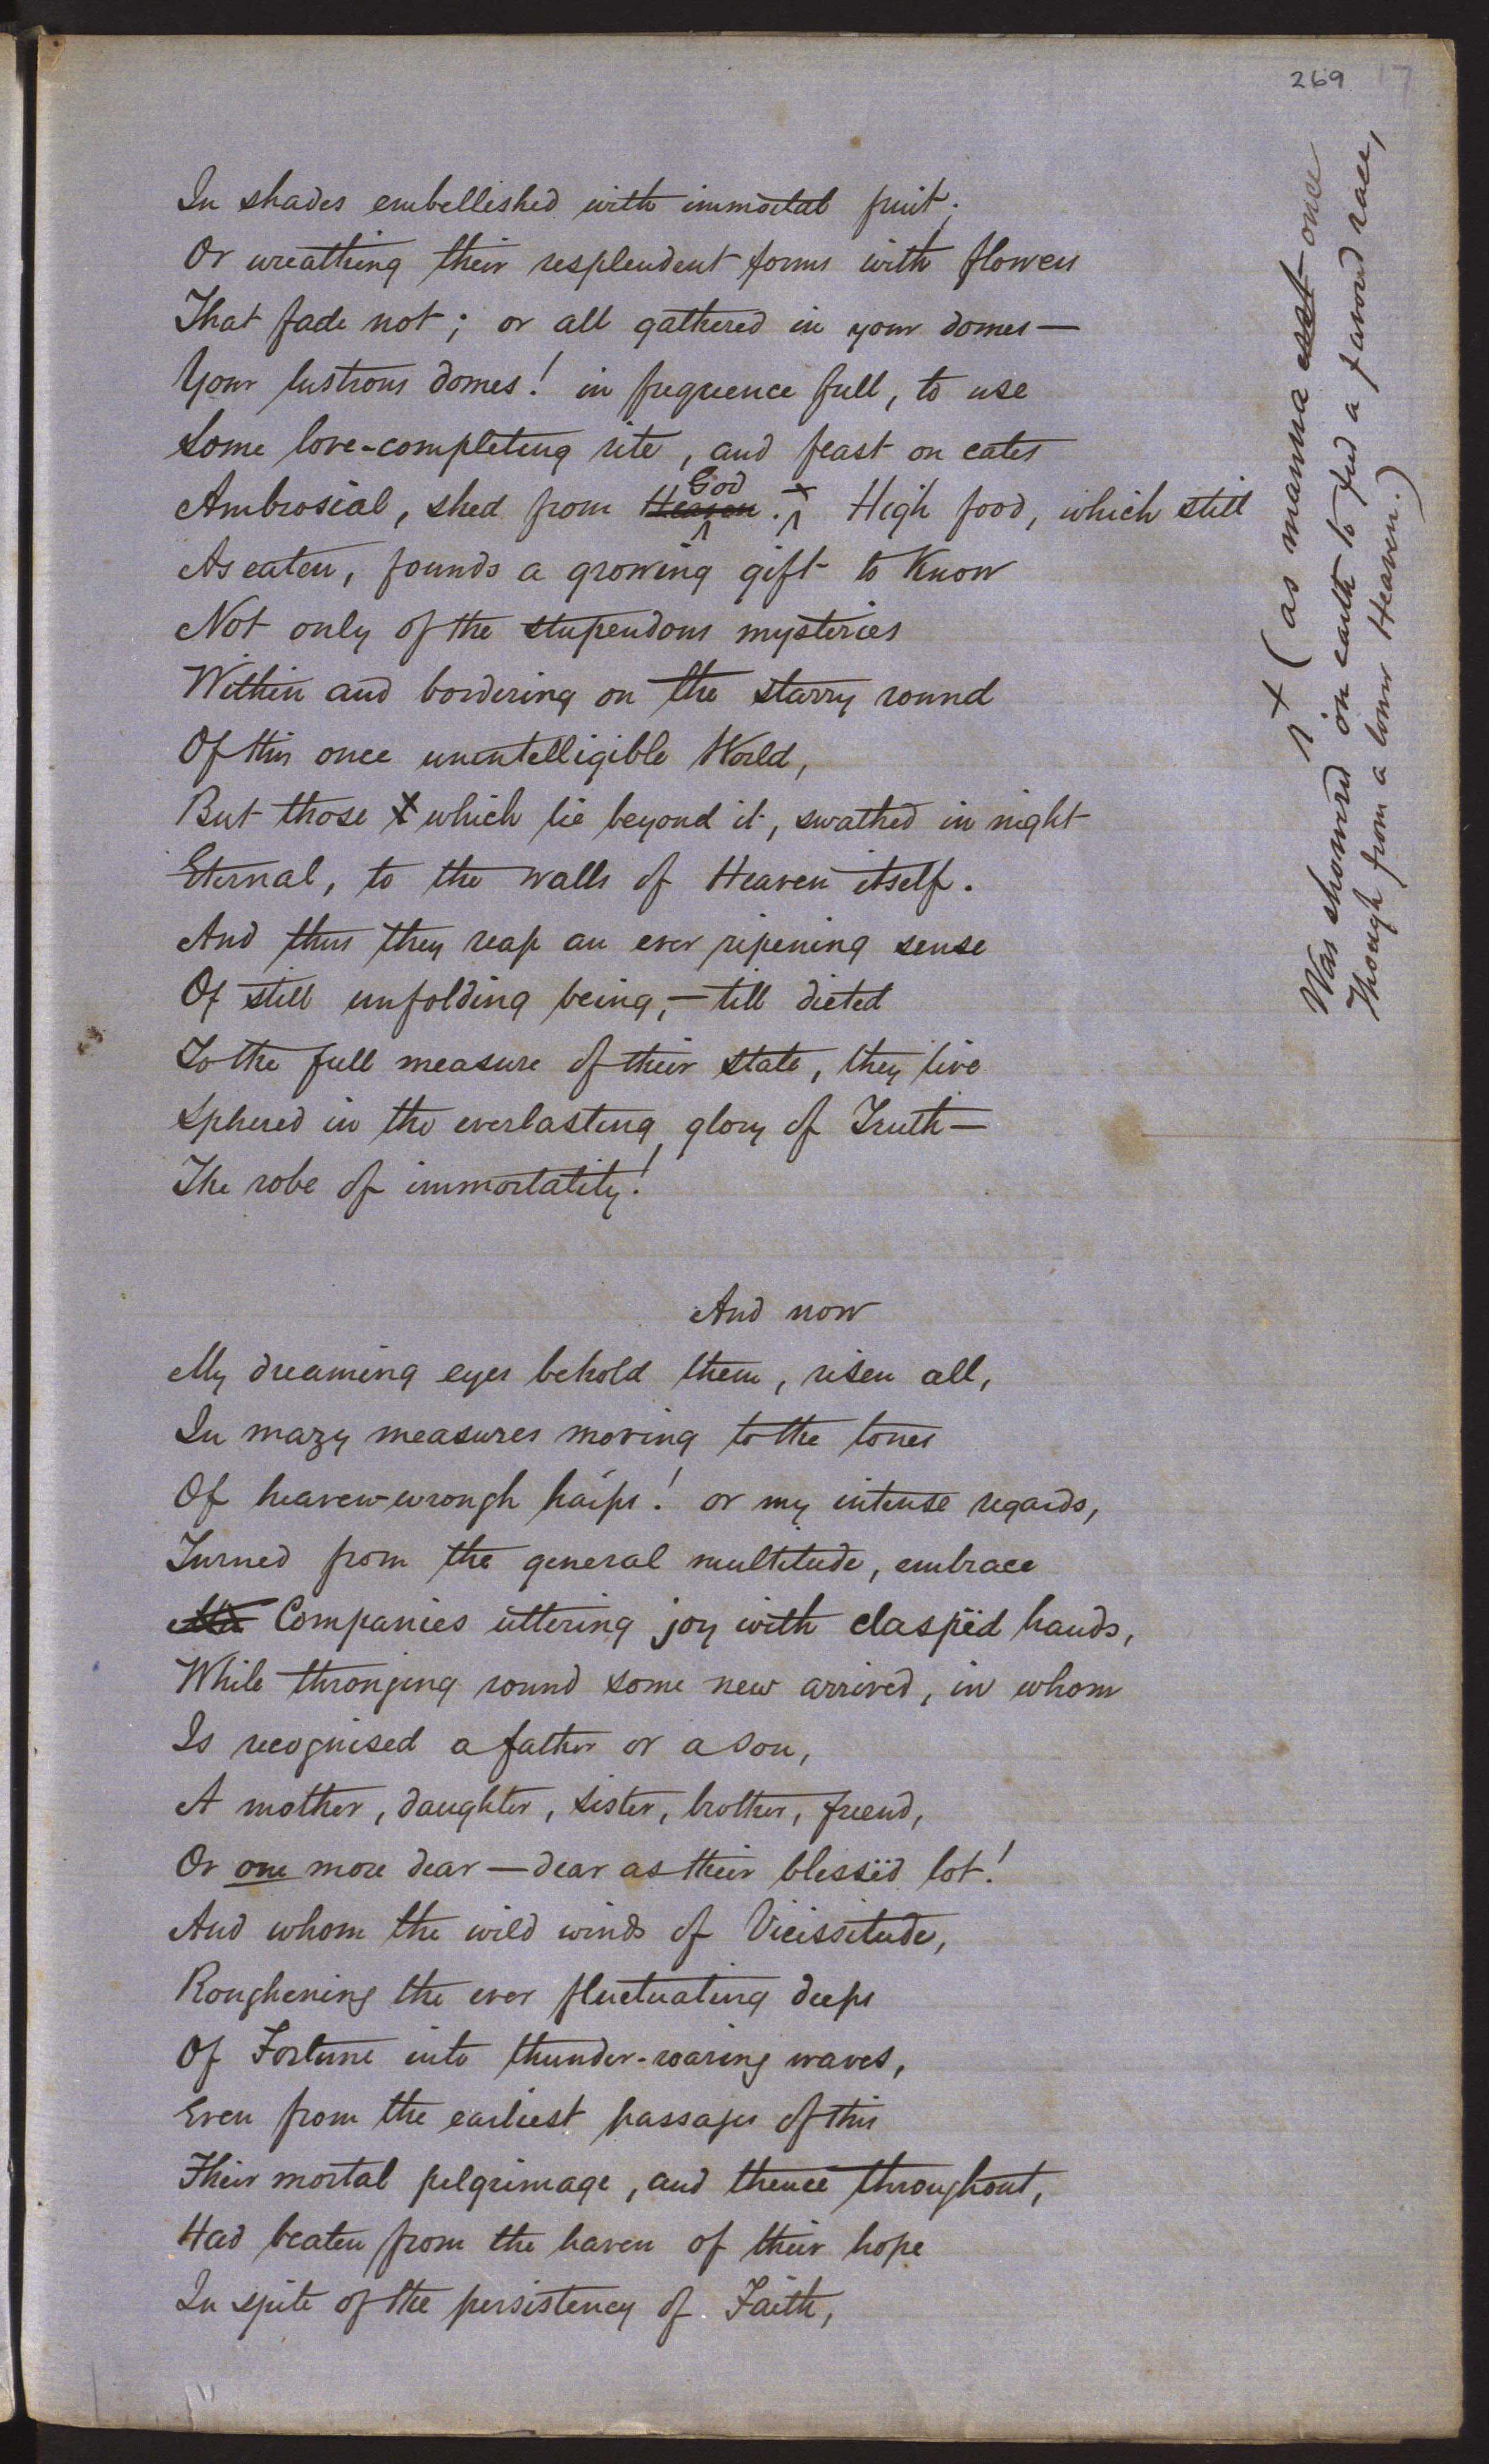 269 17
In shades embellished with immortal fruit;
Or wreathing their resplendent forms with flowers
That fade not; or all gathered in your domes—
Your lustrous domes! in frequence full, to use
Some love-completing rite, and feast on cates
God
Ambrosial, shed from Heaven. × High food, which still
As eaten, founds a growing gift to know
Not only of the stupendous mysteries
Within and bordering on the starry round
Of this once unintelligible World,
But those which lie beyond it, swathed in night
Eternal, to the walls of Heaven itself.
And thus they reap an ever ripening sense
Of still unfolding being,—till dieted
To the full measure of their state, they live
Sphered in the everlasting glory of Truth—
The robe of immortality!
And now
My dreaming eyes behold them, risen all,
In mazy measures moving to the tones
Of heaven-wrough harps! or my intense regards,
Turned from the general multitude, embrace
Companies uttering joy with claspëd hands,
While thronging round some new arrived, in whom
Is recognised a father or a son,
A mother, daughter, sister, brother, friend,
Or one more dear—dear as their blessëd lot!
And whom the wild winds of Vicissitude,
Roughening the ever fluctuating deeps
Of Fortune into thunder-roaring waves,
Even from the earliest passages of this
Their mortal pilgrimage, and thence throughout,
Had beaten from the haven of their hope
In spite of the persistency of Faith,
× (as manna once
Was showered on earth to feed a favored race,
Though from a lower Heaven.)